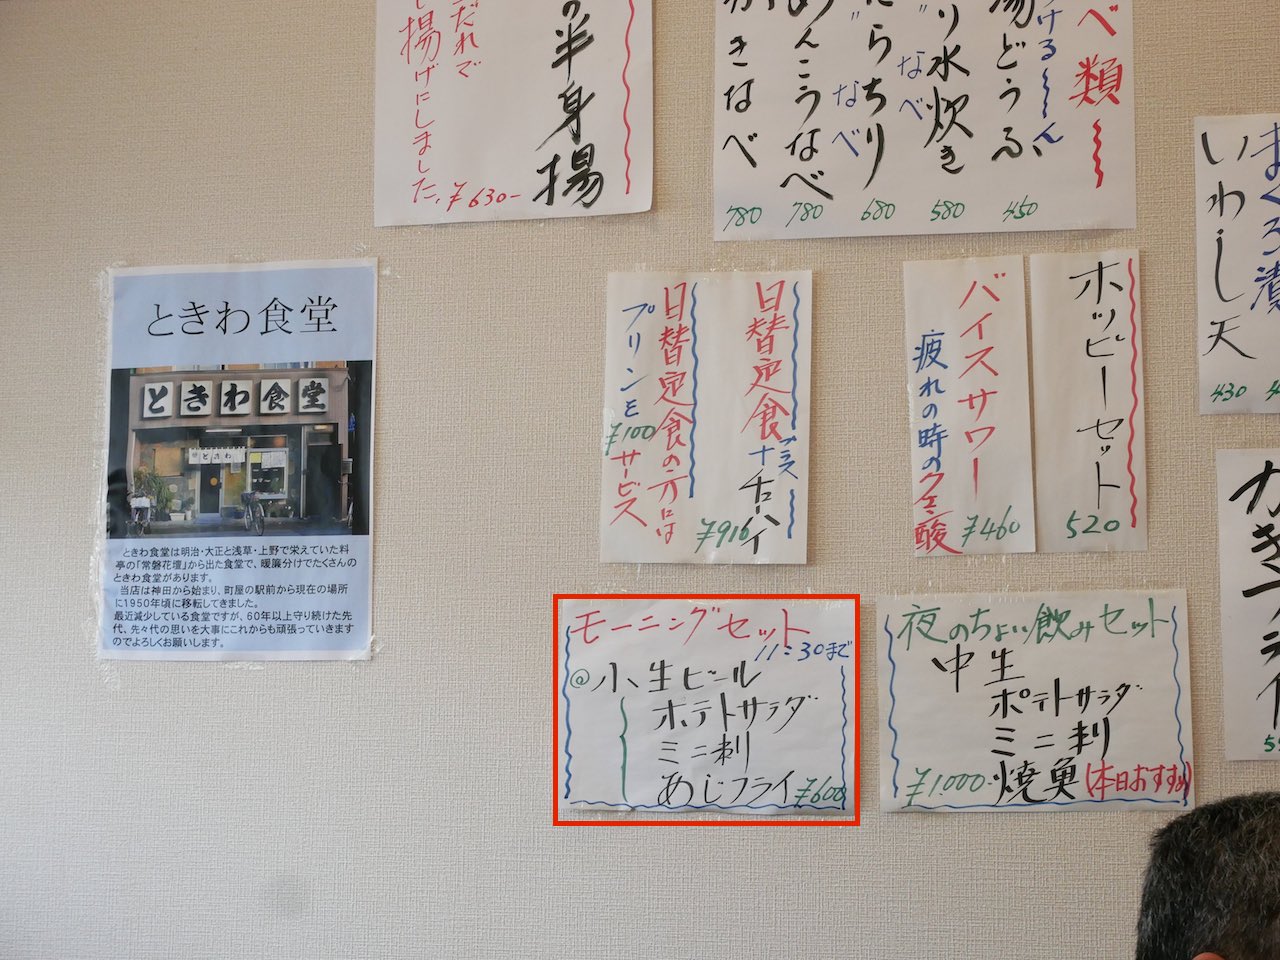 半身揚
だれで
揚げにしました。
¥630-
べ類
どうふ
450
り水炊き
なべ
580
らちり
なべ
680
あんこうなべ
780
かきなべ
780
いわし天
430
ときわ食堂
ときわ食堂
ときわ
ときわ食堂は明治・大正と浅草・上野で栄えていた料
亭の「常磐花壇」から出た食堂で、暖簾分けでたくさんの
ときわ食堂があります。
当店は神田から始まり、町屋の駅前から現在の場所
に1950年頃に移転してきました。
最近減少している食堂ですが、60年以上守り続けた先
代、先々代の思いを大事にこれからも頑張っていきます
のでよろしくお願いします。
日替定食プラス
+チューハイ
¥916
日替定食の方には
プリンを
¥100サービス
ホッピーセット
520
バイスサワー
¥460
疲れの時のクエン酸
モーニングセット
11:30まで
@小生ビール
ポテトサラダ
ミニ刺
あじフライ ¥600
夜のちょい飲みセット
中生
ポテトサラダ
ミニ刺
¥1,000- 焼魚(本日おすすめ)